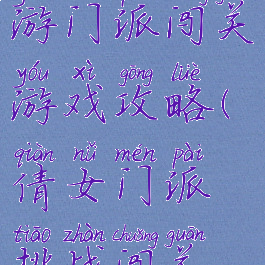 游门派闯关
yóu xì gōng lüè
游戏攻略(
qiàn nǚ mén pài
倩女门派
tiāo zhàn chuǎng guān
挑战闯关